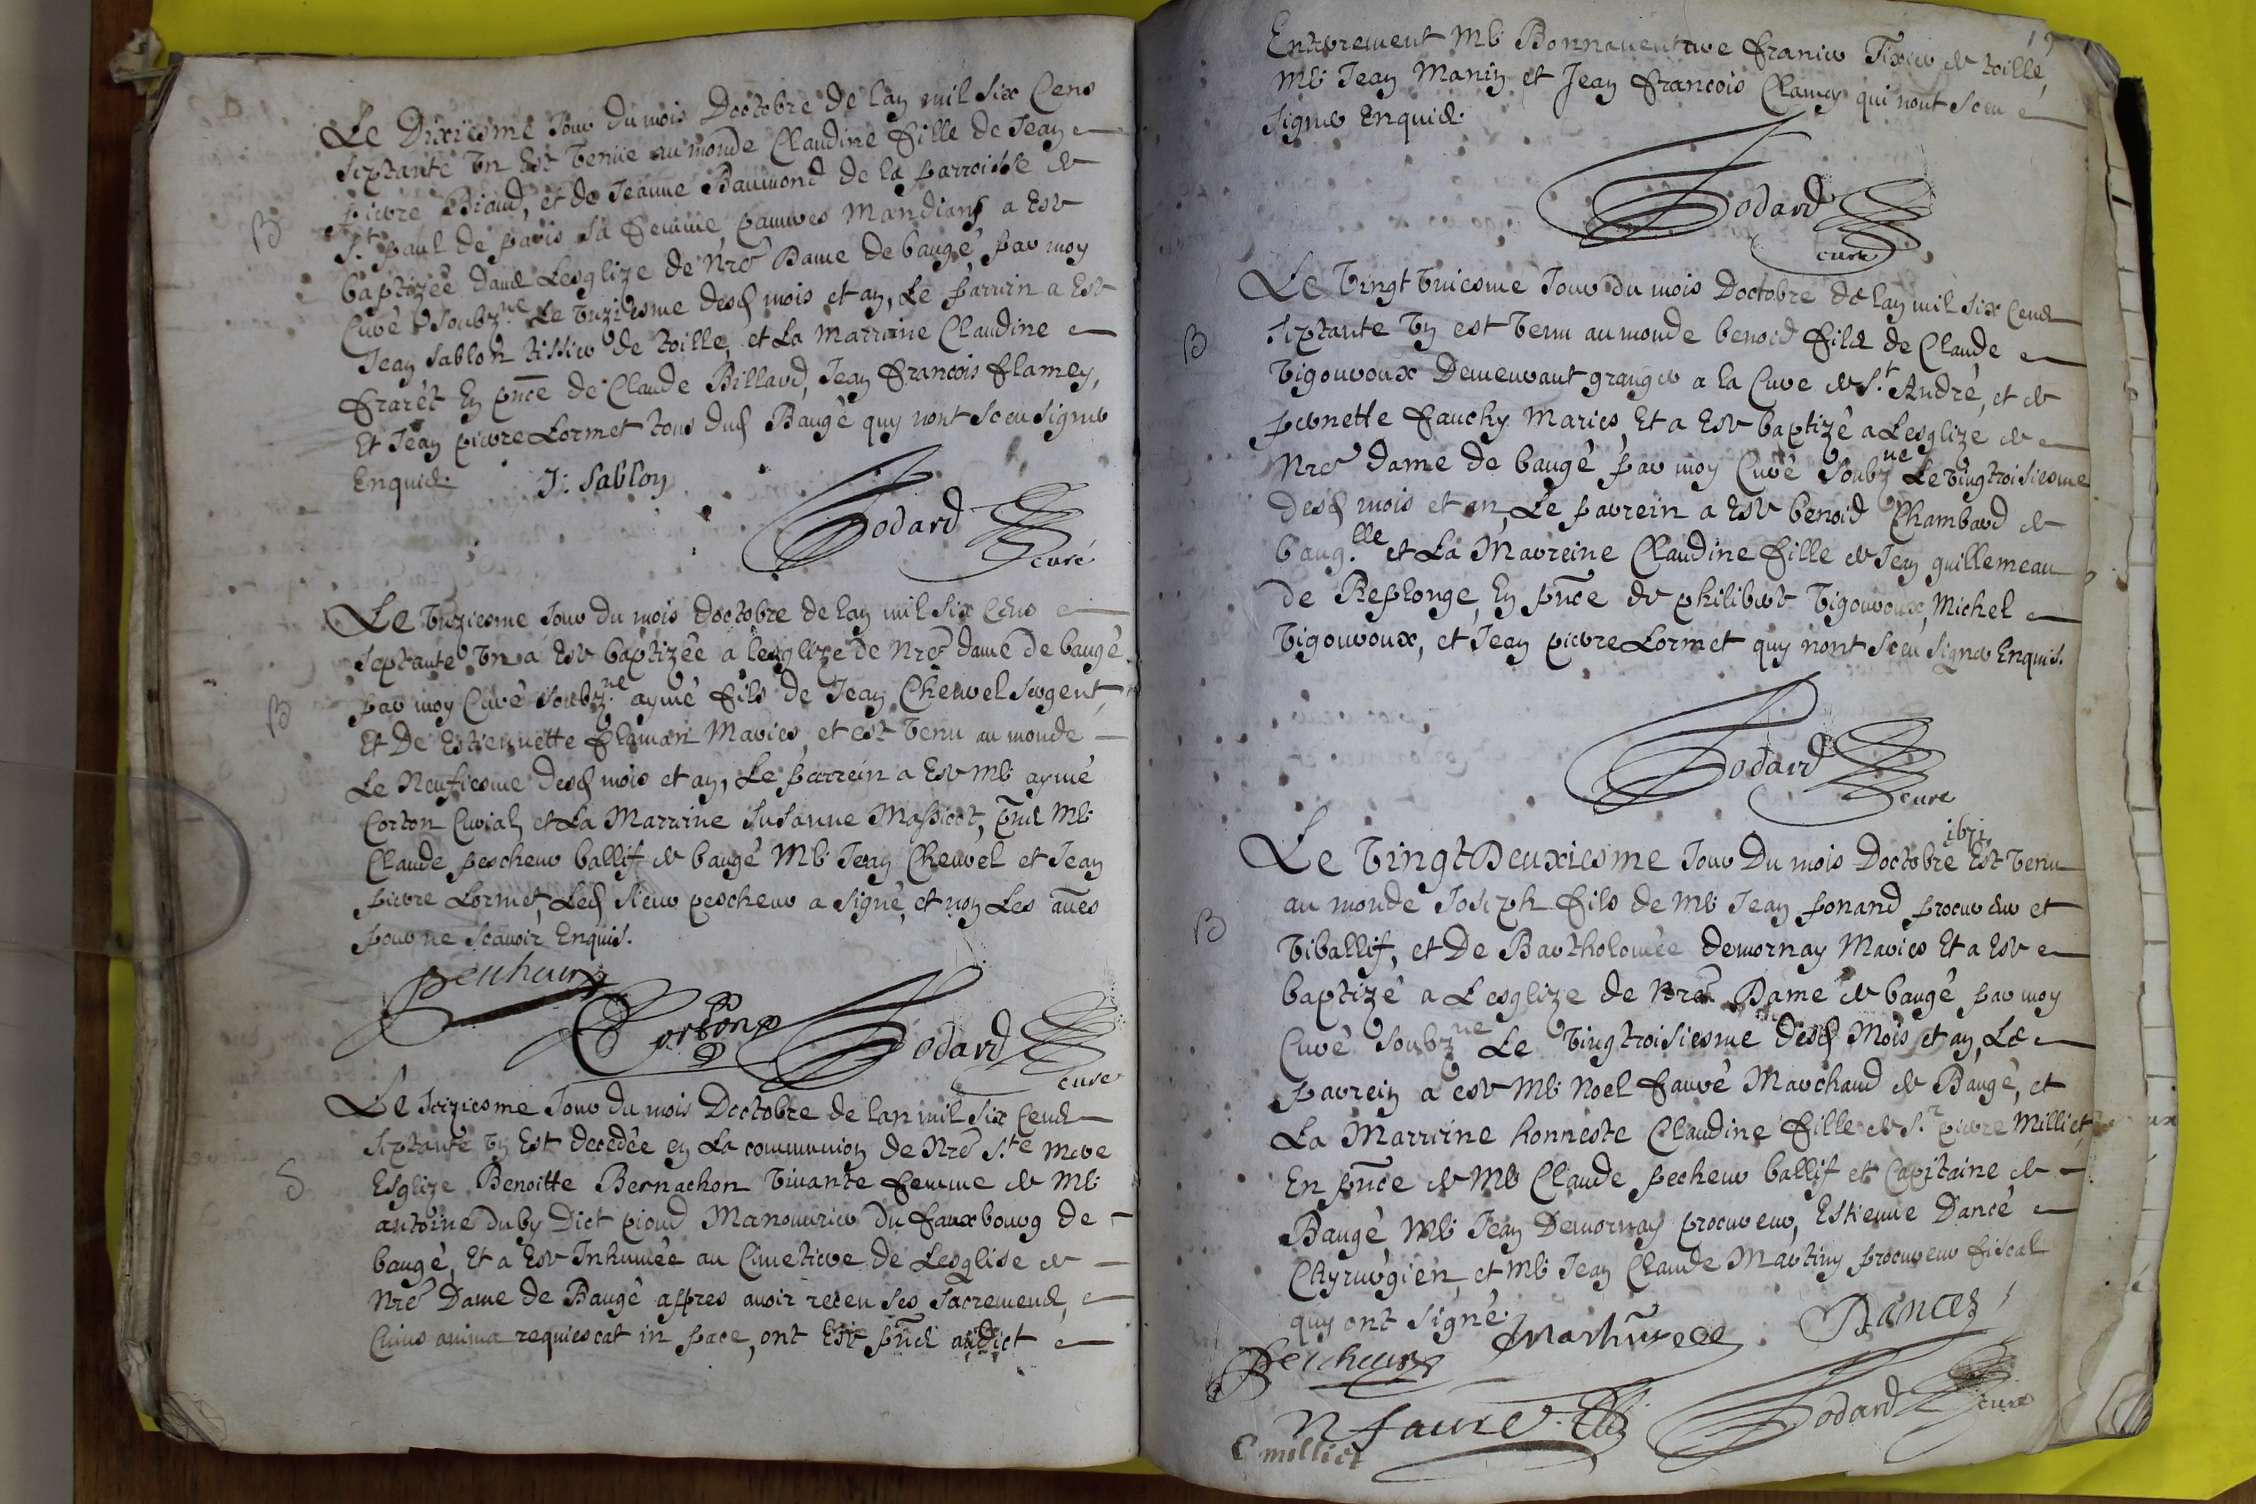 B
Le Dixiesme Jour du mois Doctobre de lan mil six Cens
septante Vn Est Venüe au monde Claudine fille de Jean
pierre Biaud, et de Jeanne Baumond de la parroisse de
St. paul de paris sa femme pauures Mandians a Esté
baptizée dans Lesglize de Nre Dame de baugé par moy
Curé soubz.ne Le Vnziesme desd mois et an, Le parrin a Esté
Jean sablon tissier de toille, et La Marraine Claudine
frarét En pnce de Claude Billard, Jean francois flamey,
Et Jean pierre Lormet tous dud Baugé quy nont sceu signer
Enquis. J. Sablon
Godard curé
B
Le Vnziesme Jour du mois doctobre de lan mil six Cens
septante Vn a Esté baptizée a lesglize de Nre dame de baugé
par moy Curé soubz.ne aymé fils de Jean Cheurel sergent,
Et De Estiennette flaman Mariés, et est Venu au monde
Le Neufiesme desd mois et an, Le parrein a Esté Mre aymé
Corton Curial, et La Marrine Susanne Massicot, pnts Mre
Claude pescheur ballif de baugé Mre Jean Cheurel et Jean
pierre Lormet, Led sieur pescheur a signé, et non Les aues
pour ne scauoir Enquis.
Pescheur Corton Godard cure
S
Le seiziesme Jour du mois Doctobre de lan mil six Cens
septante Vn Est decedée en La communion de Nre Ste Mere
Esglize Benoitte Bernachon Viuante femme de Mre
antoine duby Dict pioud Manouurier du fauxbourg de
baugé, Et a Esté Inhumée au Cimetiere de Lesglise de
Nre Dame de Baugé appres auoir receu ses sacremens,
Cuius anima requiescat in pace, ont Esté pnts audict
Enterrement Mre Bonnauenture franier Tixier de toille,
Mre Jean Manin et Jean francois Clamey qui nont sceu
signer Enquis.
Godard cure
B
Le Vingt Vniesme Jour du mois Doctobre de lan mil six Cens
septante Vn est Venu au monde benoid fils de Claude
Vigouroux Demeurant granger a la Cure de St. André, et de
pernette fauchy Mariés, Et a Esté baptizé a Lesglize de
Nre dame de baugé par moy Curé soubz.ne Le Vingtroisiesme
desd mois et an, Le parrein a Esté benoid Chambard de
baug.lle et La Marreine Claudine fille de Jean guillemeau
de Replonge, En pnce de philibert Vigouroux, Michel
Vigouroux, et Jean pierre Lormet quy nont sceu signer Enquis.
Godard cure
B
Le VingtDeuxiesme Jour Du mois Doctobre 1671 Est Venu
au monde Joseph fils de Mre Jean ponand procureur et
Viballif, et De Bartholomée demornay Mariés Et a Esté
baptizé a Lesglize de Nre Dame de baugé par moy
Curé soubz.ne Le Vingtroisiesme desd Mois et an, Le
parrein a esté Mre Noel fauré Marchand de Baugé, et
La Marrine honneste Claudine fille de Sr. pierre Milliet,
En pnce de Mre Claude pecheur ballif et Capitaine de
Baugé, Mre Jean Demornay procureur, Estienne Dancé
Chyrurgien, et Mre Jean Claude Martiny procureur fiscal
quy ont signé.
Pescheur Dancez
N faure Godard cure
C milliet